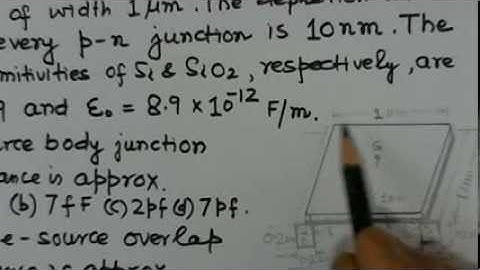 of width 1 μm. The depletion
every p-n junction is 10 nm. The
mitivities of Si & SiO2, respectively, are
9 and ε0 = 8.9 × 10^-12 F/m.
rce body junction
ance is approx.
(b) 7 fF (c) 2pf (d) 7pf.
e-source overlap
is approx
1